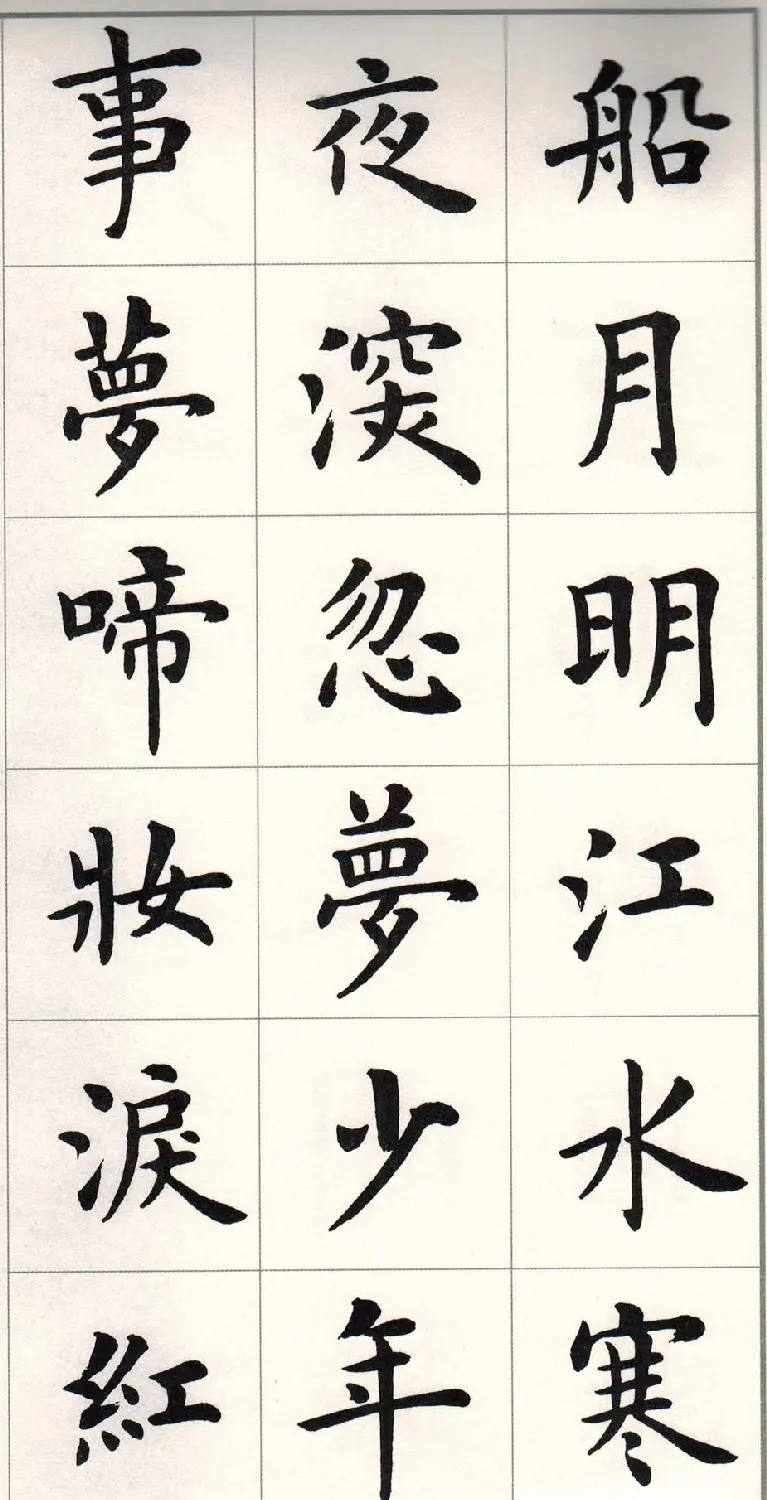 船月明江水寒
夜深忽夢少年
事夢啼妝淚紅